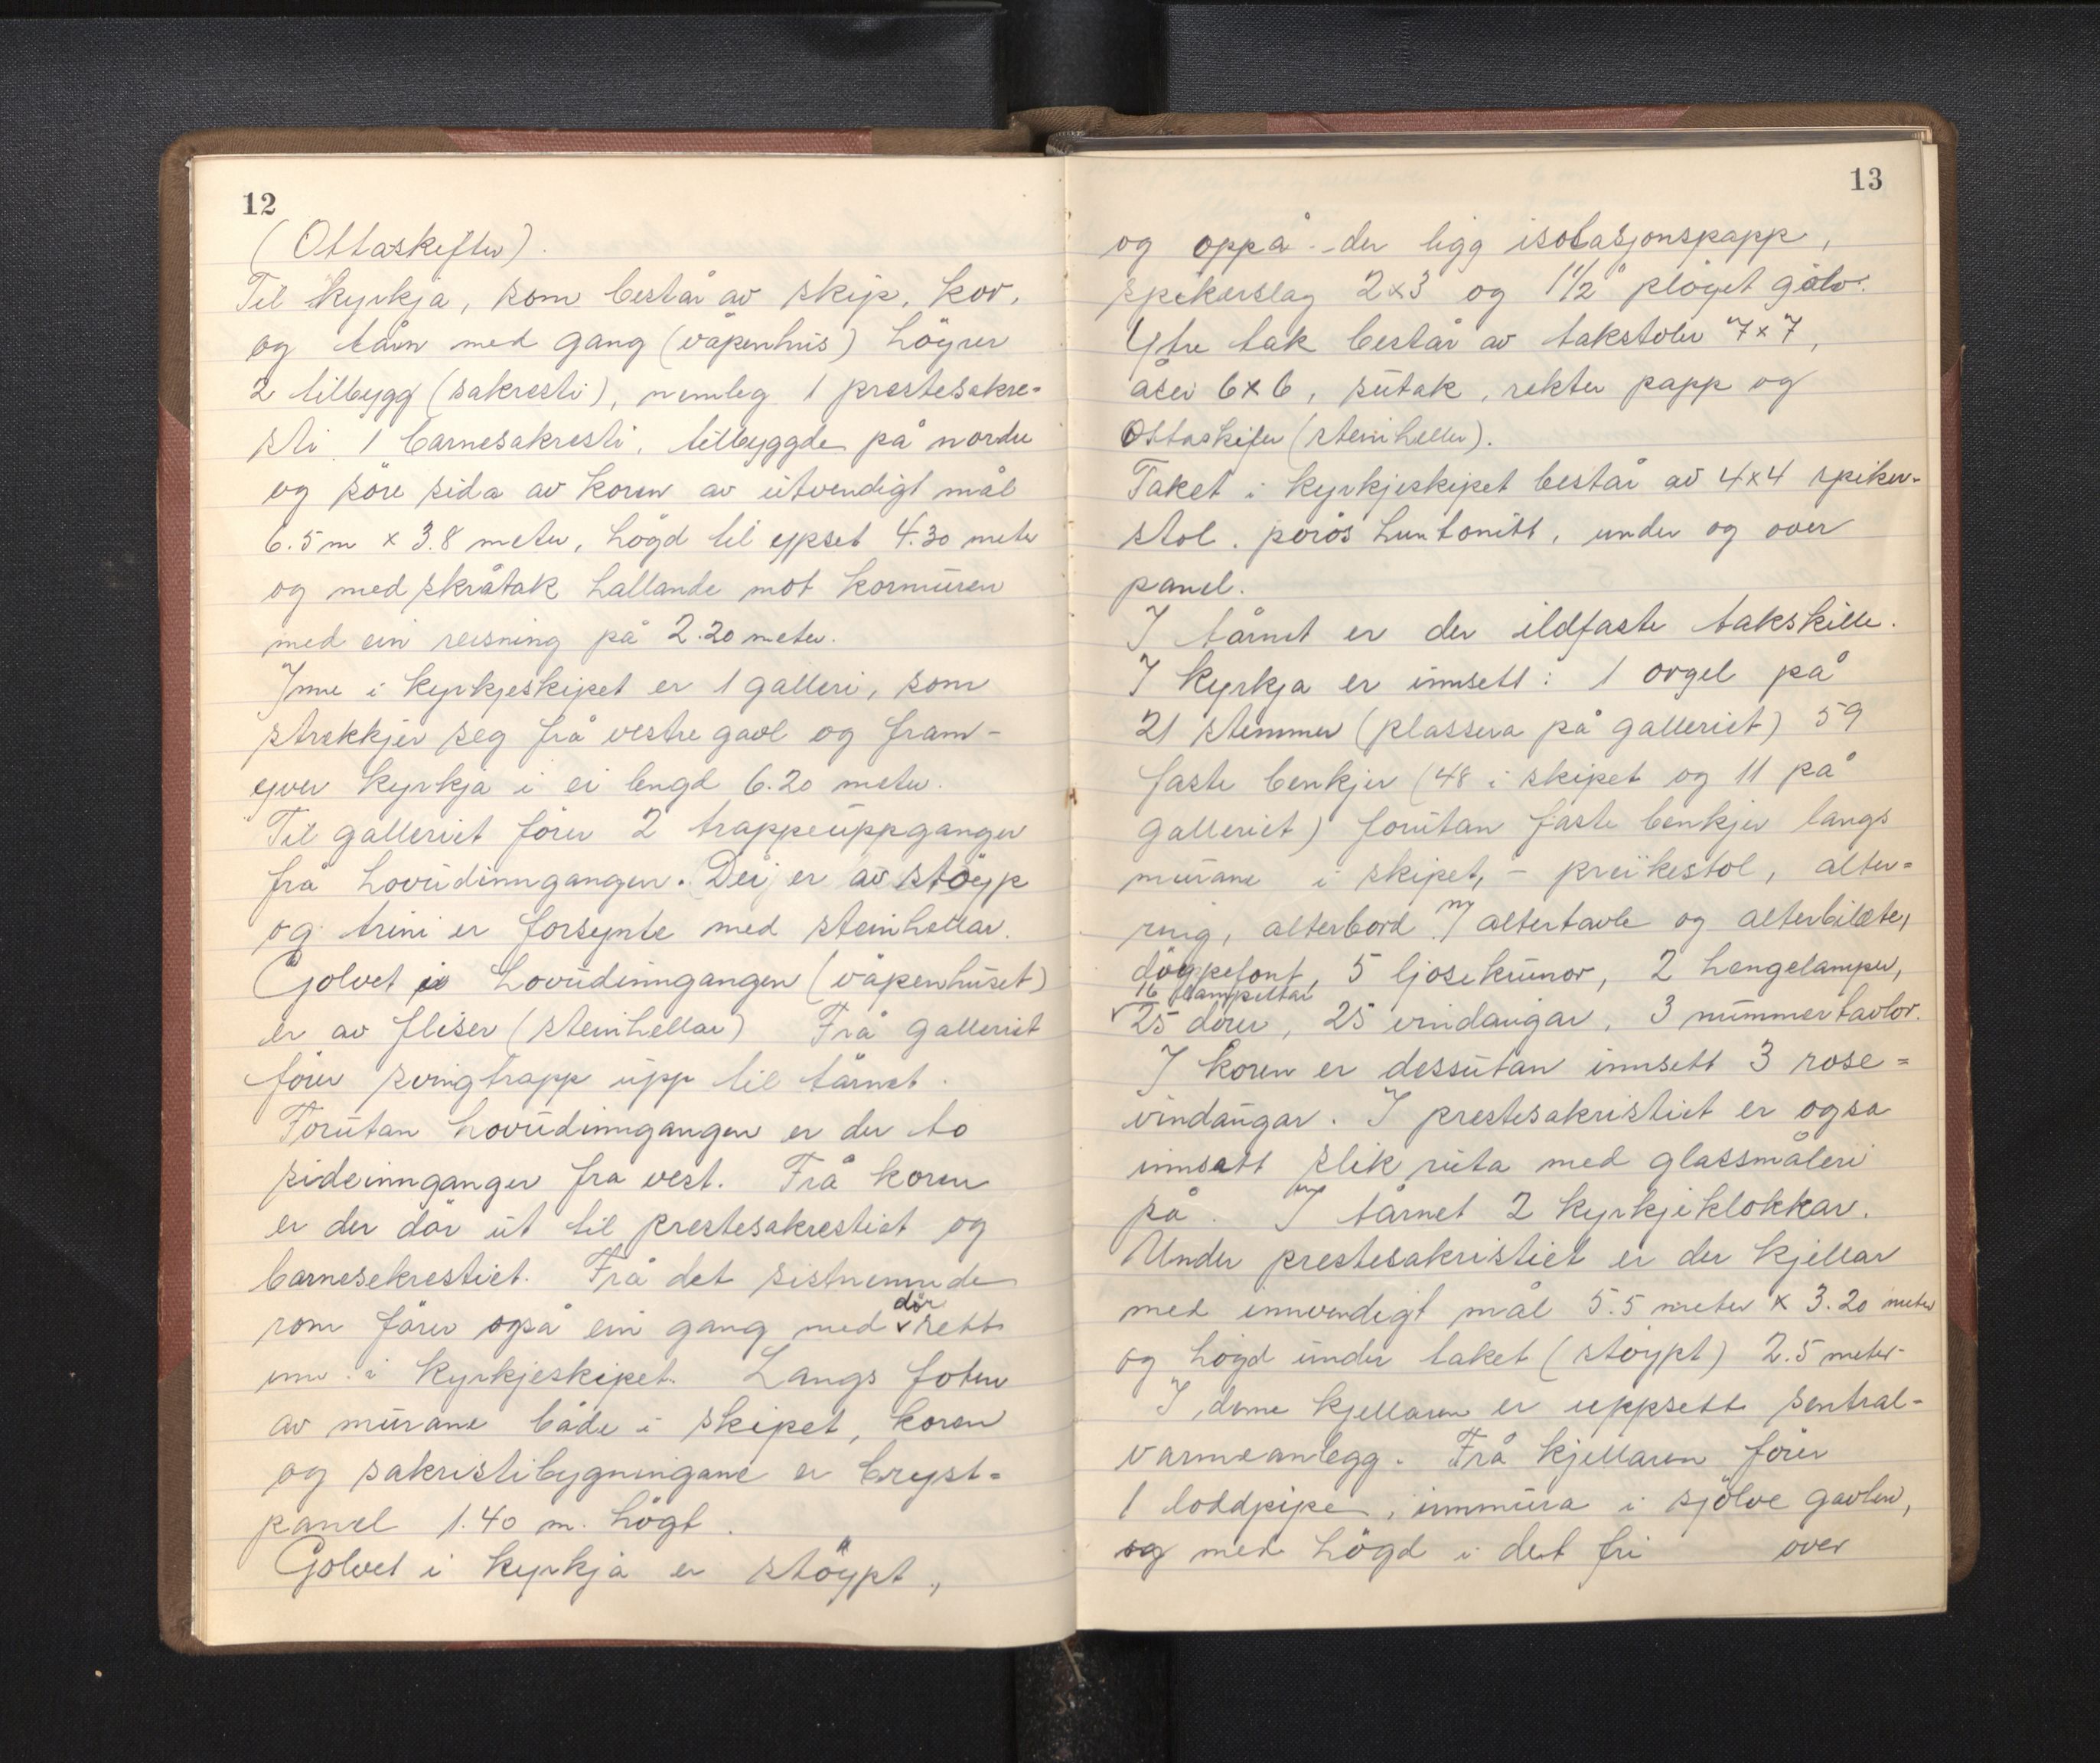 12
(Ottaskifter).
Til kyrkja, som består av skip, kor,
og tårn med gang (våpenhus) höyrer
2 tilbygg (sakresti), nemleg 1 prestesakre=
sti 1 barnesakresti, tilbyggde på nordre
og söre sida av koren av utvendigt mål
6.5 m x 3.8 meter, högd til ypset 4.30 meter
og med skråtak hallande mot kormuren
med ein reisning på 2.20 meter.
Inne i kyrkjeskipet er 1 galleri, som
strekkjer seg frå vestre gavl og fram-
yver kyrkja i ei lengd 6.20 meter.
Til galleriet förer 2 trappeuppganger
frå hovudinngangen. Dei er av stöyp
og trini er forsynte med steinhellar.
Golvet i hovudinngangen (våpenhuset)
er av fliser (steinhellar) Frå galleriet
förer svingtrapp upp til tårnet.
Forutan hovudinngangen er der to
sideinnganger fra vest. Frå koren
er der dör ut til prestesakrestiet og
barnesekrestiet. Frå det sistnemnde
rom förer også ein gang med dör rett
inn i kyrkjeskipet. Langs foten
av murane både i skipet, koren
og sakristibygningane er bryst=
panel 1.40 m. högt.
Golvet i kyrkja er stöypt,
13
og oppå der ligg isolasjonspapp,
spikerslag 2x3 og 1 1/2" plöget golv.
Ytre tak består av takstoler 7x7,
åser 6x6, sutak, rekter papp og
Ottaskifer (steinheller).
Taket i kyrkjeskipet består av 4x4 spiker-
stol. porös huntonitt, under og over
panel.
I tårnet er der ildfaste takskille.
I kyrkja er innsett: 1 orgel på
21 stemmer (plassera på galleriet) 59
faste benkjer (48 i skipet og 11 på
galleriet) forutan faste benkjer langs
murane i skipet, - preikestol, alter=
ring, alterbord, ny altertavle og alterbilete,
döypefont, 5 ljosekrunor, 2 hengelamper,
16 lampettar
25 dörer, 25 vindaugar, 3 nummertavlor.
I koren er dessutan innsett 3 rose=
vindaugar. I prestesakristiet er ogsa
innsatt slik ruta med glassmåleri
på. I tårnet 2 kyrkjeklokkar.
Under prestesakristiet er der kjellar
med innvendigt mål 5.5 meter x 3.20 meter
og högd under taket (stöypt) 2.5 meter-
I denne kjellaren er uppsett sentral-
varmeanlegg. Frå kjellaren förer
1 loddpipe, innmura i sjölve gavlen,
og med högd i det fri over